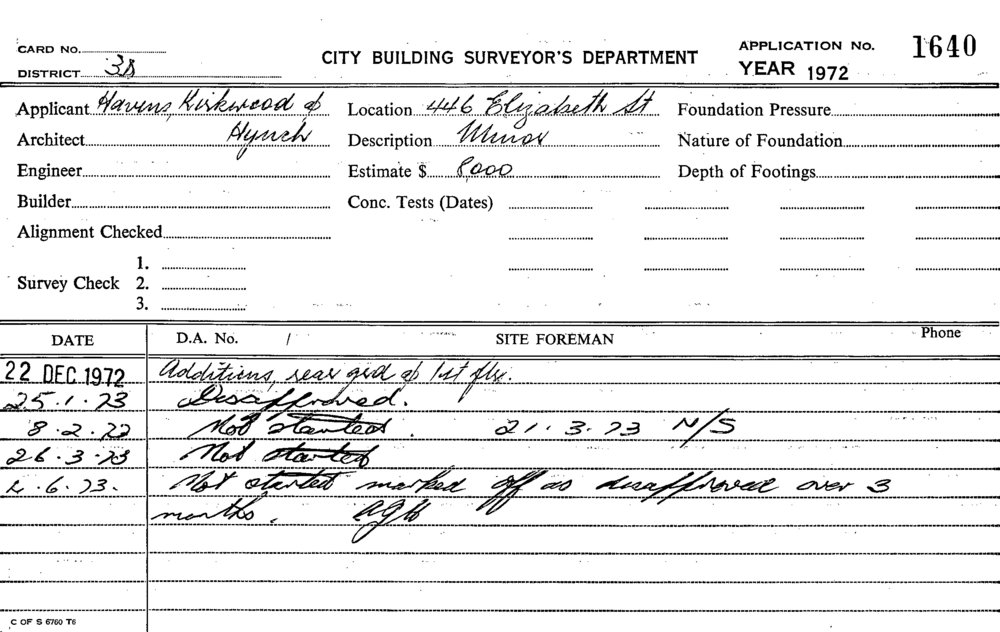 CARD NO.
DISTRICT 3B
CITY BUILDING SURVEYOR'S DEPARTMENT
APPLICATION No. 1640
YEAR 1972
Applicant Havens, Kirkwood & Location 446 Elizabeth St Foundation Pressure
Architect Hynch Description Minor Nature of Foundation
Engineer Estimate $ 8,000 Depth of Footings
Builder Conc. Tests (Dates)
Alignment Checked
1.
Survey Check 2.
3.
DATE D.A. No. / SITE FOREMAN Phone
22 DEC 1972 Additions, rear grd & 1st flr.
25.1.73 Disapproved.
8.2.73 Not started. 21.3.73 N/S
26.3.73 Not started
4.6.73. Not started marked off as disapproved over 3
months.
C OF S 6760 T6